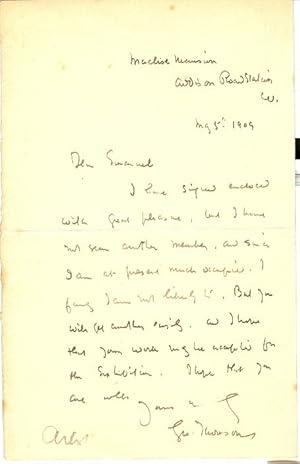 Maclise Mansions
Addison Road Station
W.
May 5th 1909
Dear Emanuel
I have signed enclosed
with great pleasure, but I have
not seen another member, and since
I am at present much occupied, I
fancy I am not likely to. But you
will get another easily, and I hope
that your work may be accepted for
the Exhibition. I hope that you
are well
yours
Geo. Thomson
Artist